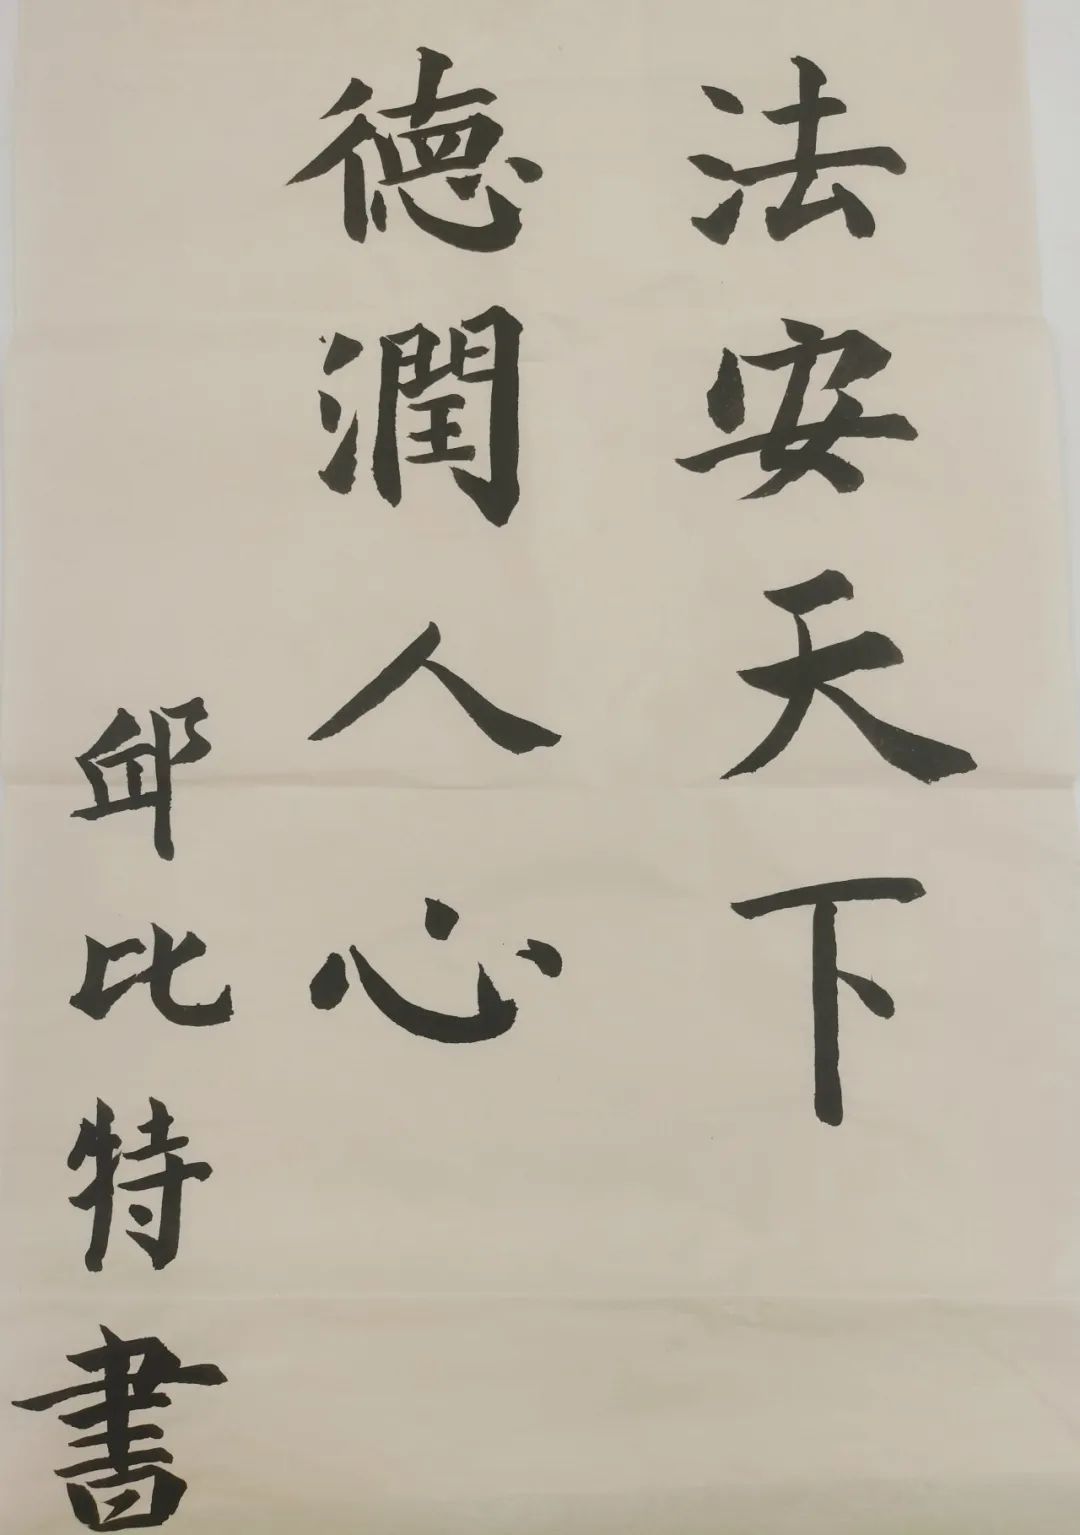 法安天下
德潤人心
邱比特書